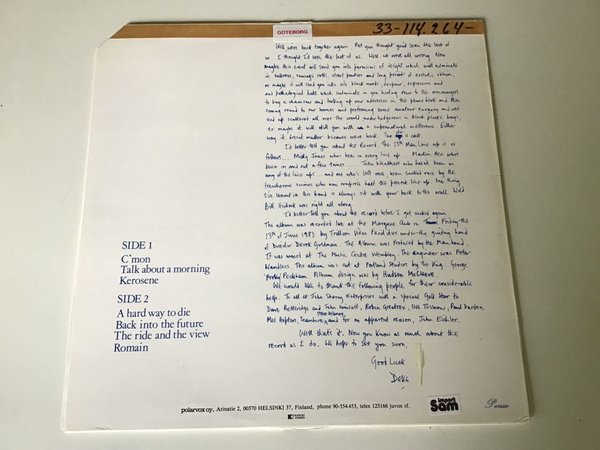 GÖTEBORG
33-114264-
Well we're back together again. But you thought you'd seen the last of
us. I thought I'd seen the last of us. Well we were all wrong. Now
maybe this event will send you into paroxisms of delight which will culminate
in balloons, running riots, street parties and long periods of ecstatic
or maybe it will send you into black moods, despair, depression and
hate which culminate in you heading down to the ironmongers
to buy a chainsaw and looking up our addresses in the phone book and then
coming round to our homes and performing some amateur surgery and we'll
end up scattered all over the world in black plastic bags,
or maybe it will fill you with a supernatural indifference. Either
way it doesn't matter because we're back. The is cast.
I'd better tell you about the Record. The 13th Man line up is as
follows.... Micky Jones who's been in every line up. Martin Ace who's
been in and out a few times.... John Weathers who hasn't been in
any of the line ups... and me who's left once been sacked once by the
treacherous swines who now comprise half the present line up. One thing
I've learnt in this band is always sit with your back to the wall. Wild
Bill Hickock was right all along.
I'd better tell you about the record before I get sacked again.
The album was recorded live at the Marquee Club on Friday the
13th of June 1983 by Trillion Video Facilities under the guiding hand
of Director Derek Goodman. The Album was Produced by the Man band.
It was mixed at The Music Centre Wembley. The engineer was Peter
Wandless. The album was cut at Portland Studios by the King. George
Peckham. Album design was by Hudson
We would like to thank the following people for their considerable
help. To all at John Sherry Enterprises with a special Gold Star to
Dave Betteridge and John
Mal and for no apparent reason, John Eichler.
Well that's it. Now you know as much about the
record as I do. We hope to see you soon.
Good Luck
DEKE
SIDE 1
C'mon
Talk about a morning
Kerosene
SIDE 2
A hard way to die
Back into the future
The ride and the view
Romain
polarvox oy, Arinatie 2, 00370 HELSINKI 37, Finland, phone 90-554453, telex 123166 juvox sf.
import
Sam
Picasso